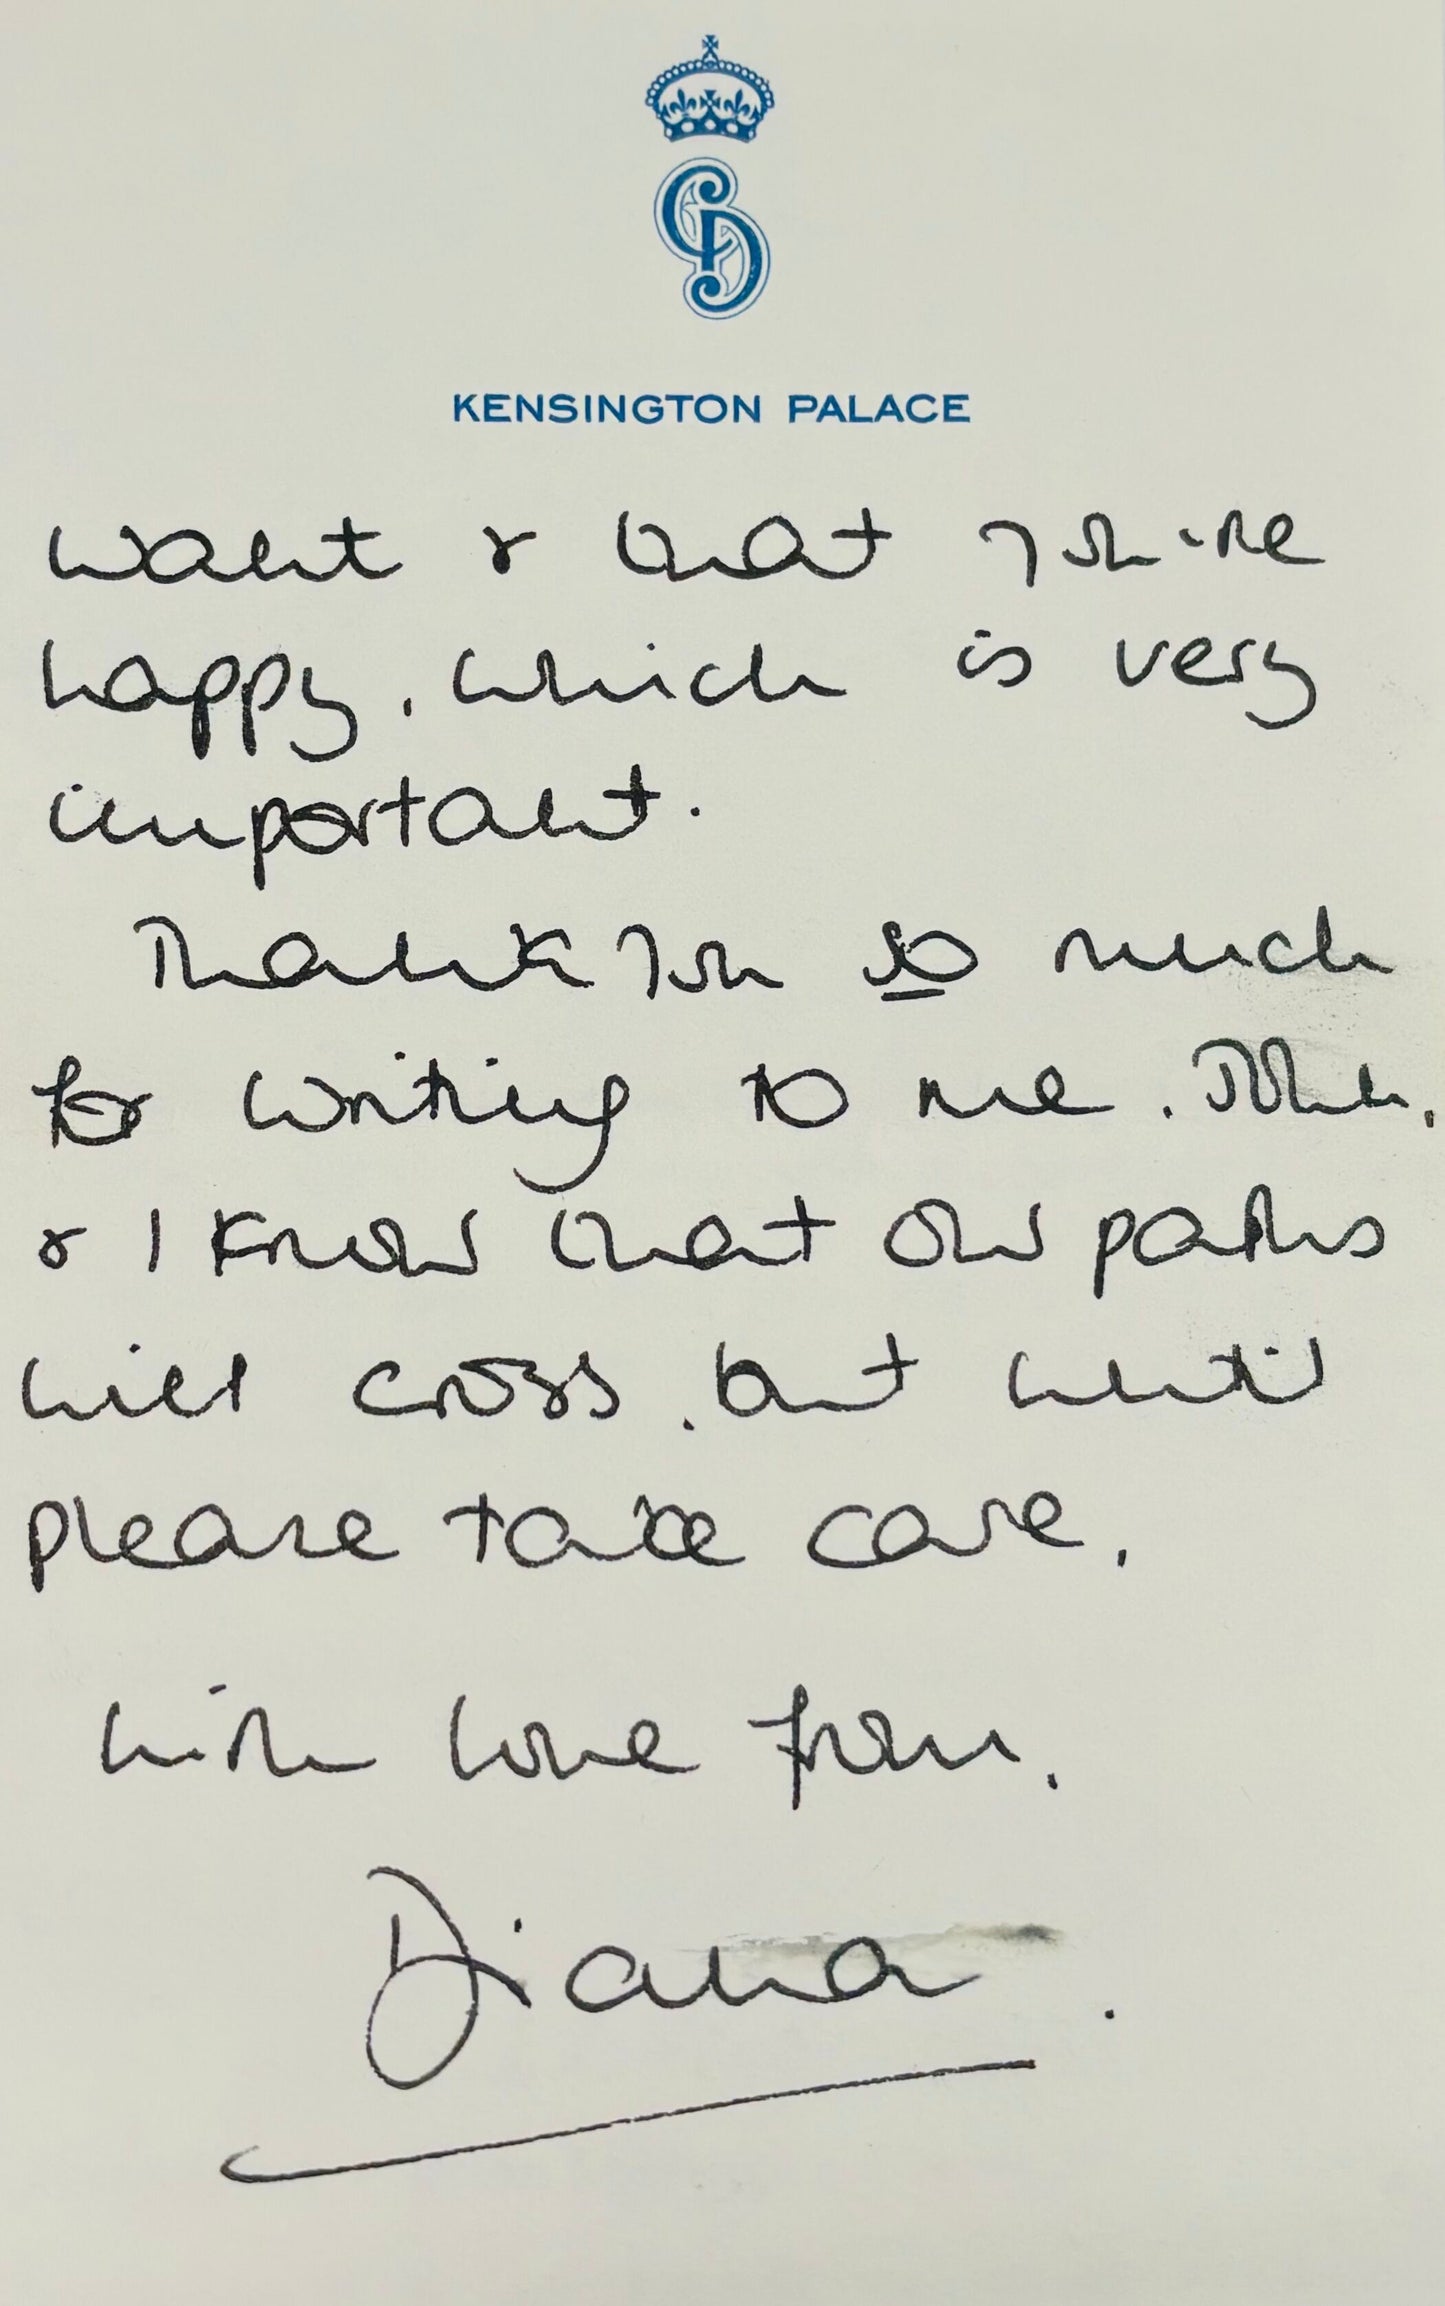 CD
KENSINGTON PALACE
want & that you're
happy, which is very
important.
Thank you so much
for writing to me.
& I know that our paths
will cross, but until
please take care.
with love from,
Diana.